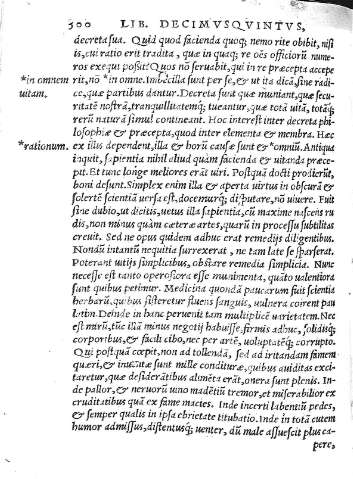 300 LIB. DECIMVSQVINTVS,
decreta sua. Quid quod facienda quoq; nemo rite obibit, nisi
is, cui ratio erit tradita, quæ in quaq; re oẽs officiorũ nume-
ros exequi possit? Quos nõ seruabit, qui in re præcepta accepe
*in omnem rit, nõ *in omne. Imbecilla sunt per se, & ut ita dicã, sine radi-
uitam. ce, quæ partibus dantur. Decreta sunt quæ muniant, quæ secu-
ritatẽ nostrã, tranquillitatemq; tueantur, quæ totã uitã, totãq;
rerũ naturã simul contineant. Hoc interest inter decreta phi-
losophiæ & præcepta, quod inter elementa & membra. Hæc
*rationum. ex illis dependent, illa & horũ causæ sunt & *omniũ. Antiqua
inquit, sapientia nihil aliud quàm facienda & uitanda præce-
pit. Et tunc longe meliores erãt uiri. Postquã docti prodierũt,
boni desunt. Simplex enim illa & aperta uirtus in obscurã &
solertẽ scientiã uersa est, docemurq; disputare, nõ uiuere. Fuit
sine dubio, ut dicitis, uetus illa sapientia, cũ maxime nascens ru
dis, non minus quàm cæteræ artes, quarũ in processu subtilitas
creuit. Sed ne opus quidem adhuc erat remedijs diligentibus.
Nondũ in tantũ nequitia surrexerat, nec tam late se sparserat.
Poterant uitijs simplicibus, obstare remedia simplicia. Nunc
necesse est tanto operosiora esse munimenta, quãto ualentiora
sunt quibus petimur. Medicina quondã paucarum fuit scientia
herbarũ, quibus sisteretur fluens sanguis, uulnera coirent pau
latim. Deinde in hanc peruenit tam multiplicẽ uarietatem. Nec
est mirũ, tũc illã minus negotij habuisse, firmis adhuc, solidisq;
corporibus, & facili cibo, nec per artẽ, uoluptatẽq; corrupto.
Qui postquã cœpit, non ad tollendã, sed ad irritandam famem
quæri, & inuentæ sunt mille condituræ, quibus auiditas exci-
taretur, quæ desiderãtibus alimẽta erãt, onera sunt plenis. In-
de pallor, & neruorũ uino madẽtiũ tremor, et miserabilior ex
cruditatibus quã ex fame macies. Inde incerti labentiũ pedes,
& semper qualis in ipsa ebrietate titubatio. Inde in totã cutem
humor admissus, distentusq; uenter, dũ male assuescit plus ca-
pere,